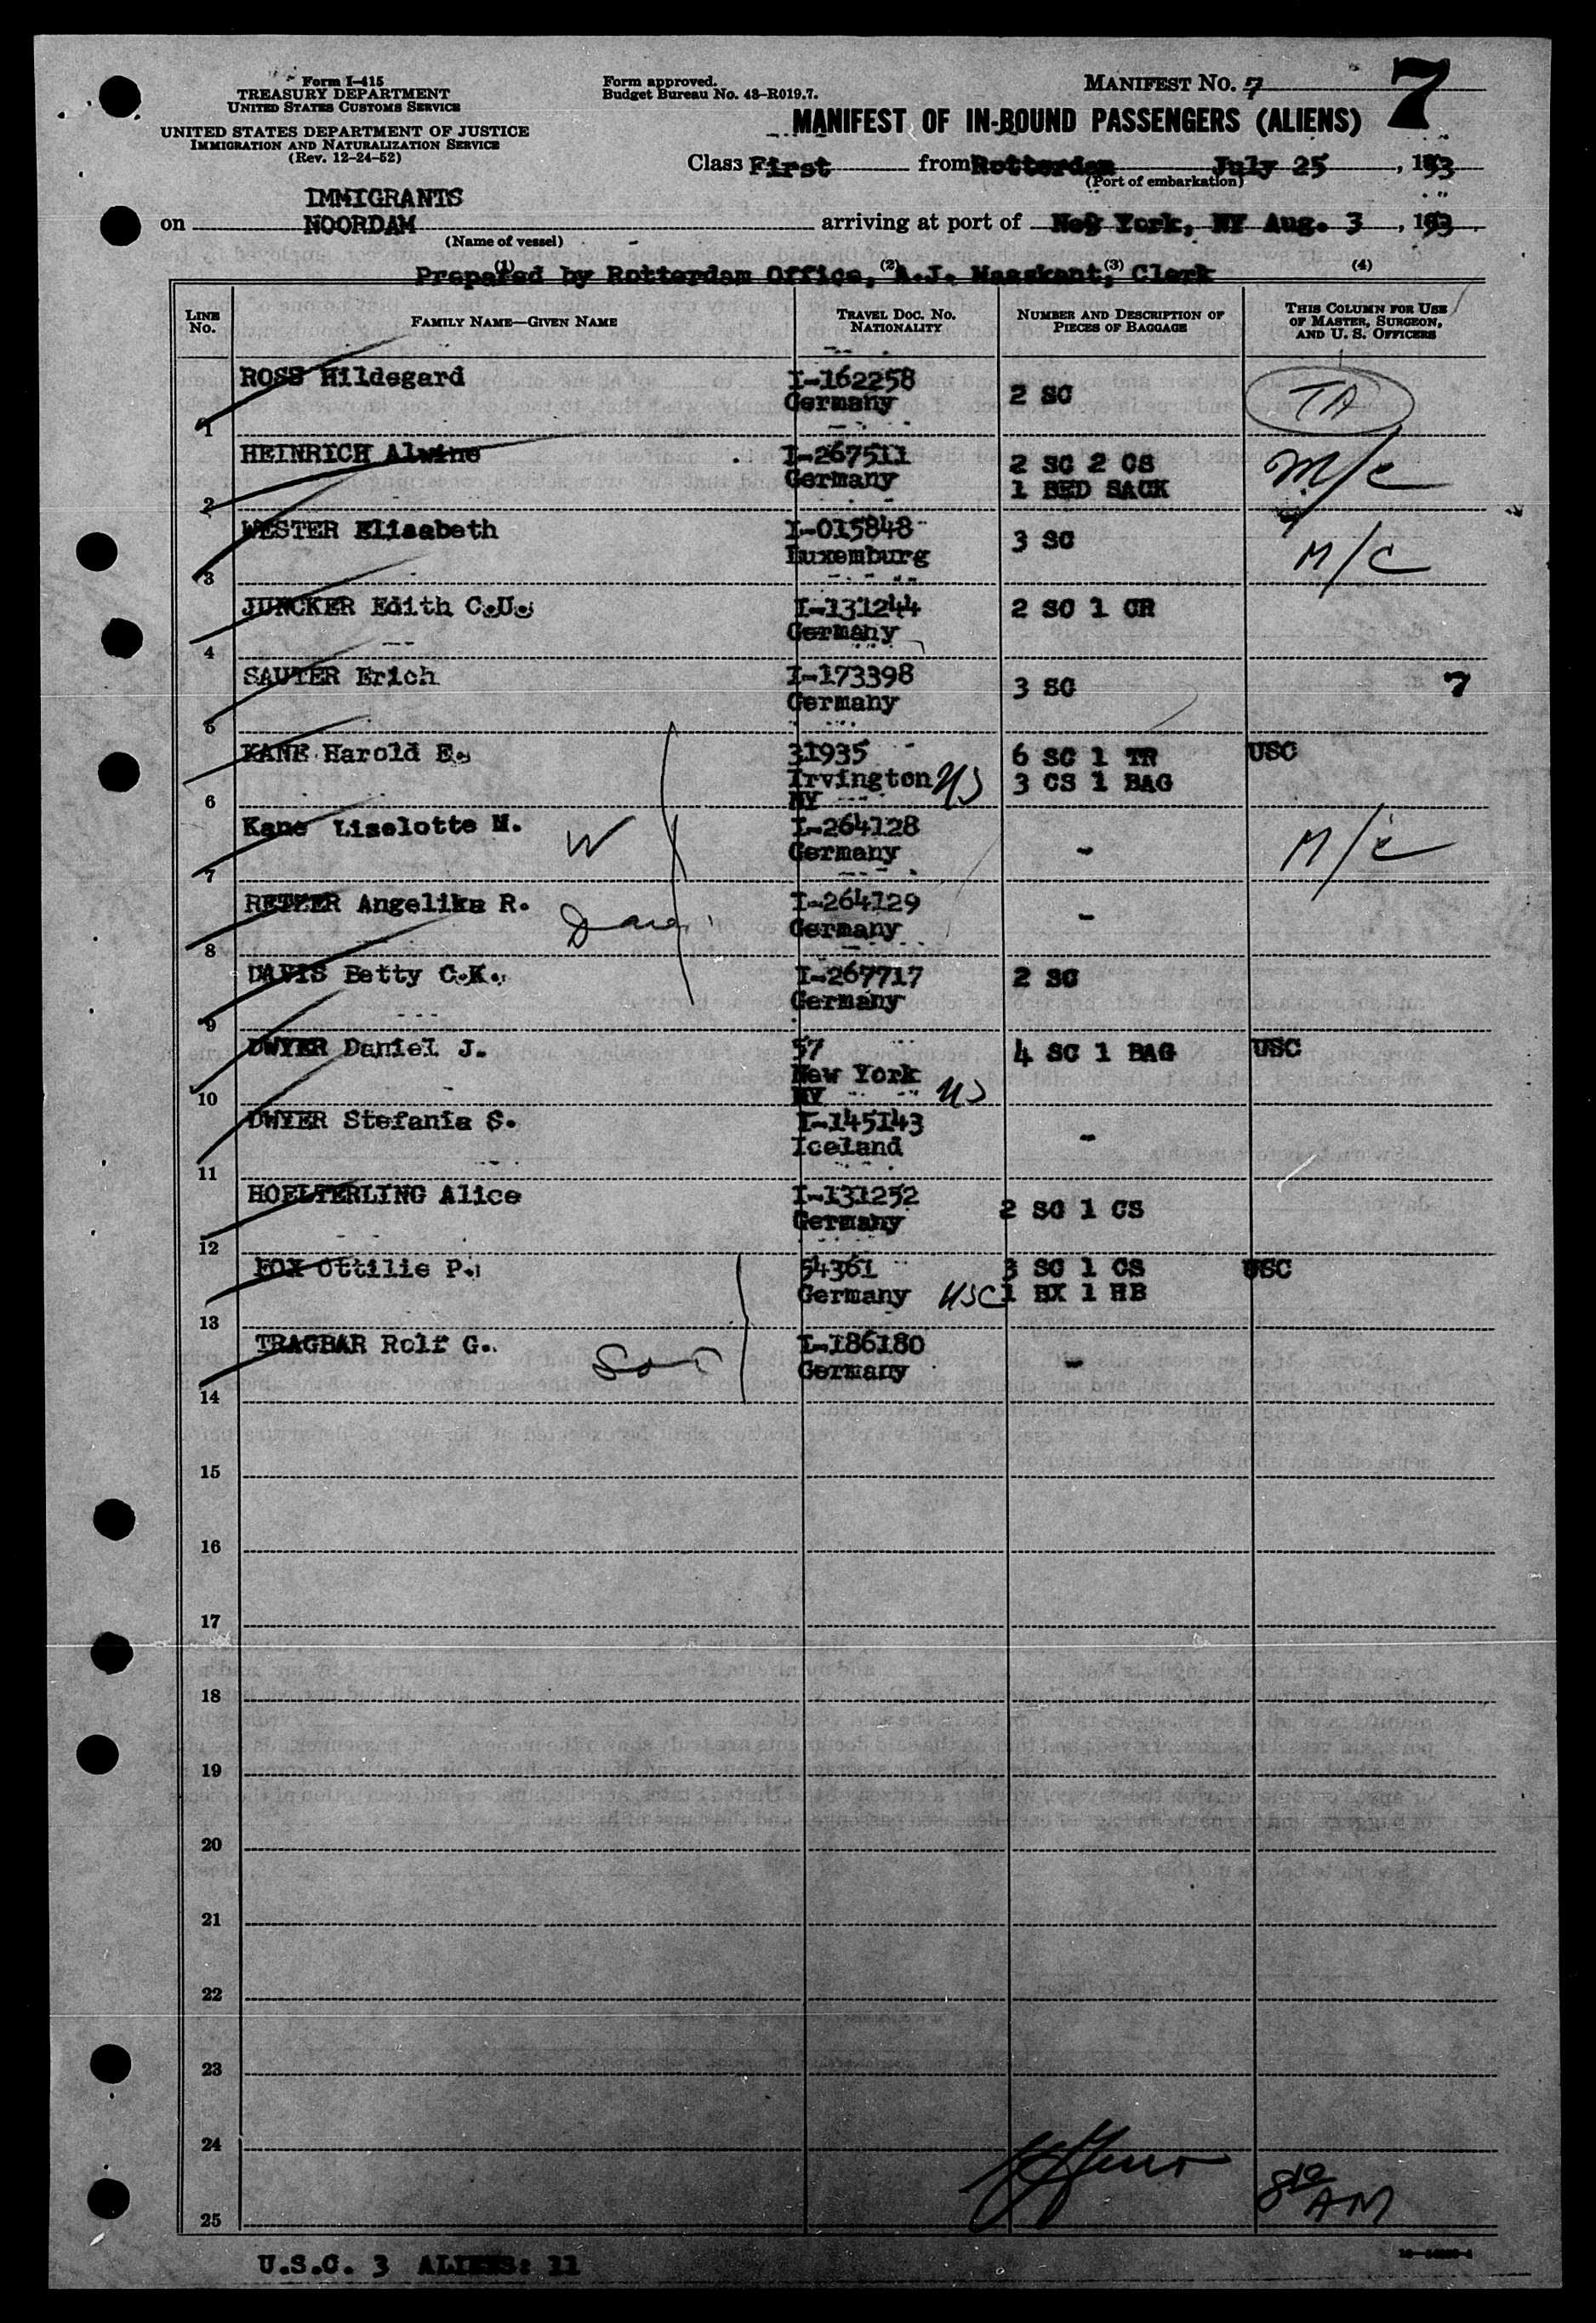 Form I-415
TREASURY DEPARTMENT
UNITED STATES CUSTOMS SERVICE
UNITED STATES DEPARTMENT OF JUSTICE
IMMIGRATION AND NATURALIZATION SERVICE
(Rev. 12-24-52)
Form approved.
Budget Bureau No. 43-R019.7.
MANIFEST NO. 7
7
MANIFEST OF IN-BOUND PASSENGERS (ALIENS)
Class First from Rotterdam July 25, 1953
(Port of embarkation)
IMMIGRANTS
on NOORDAM arriving at port of New York, NY Aug. 3, 1953
(Name of vessel)
Prepared by Rotterdam Office, A.J. Maaskant, Clerk
(1) (2) (3) (4)
LINE NO. FAMILY NAME—GIVEN NAME TRAVEL DOC. NO. NATIONALITY NUMBER AND DESCRIPTION OF PIECES OF BAGGAGE THIS COLUMN FOR USE OF MASTER, SURGEON, AND U. S. OFFICERS
1 ROSS Hildegard I-162258 Germany 2 SC TA
2 HEINRICH Alwine I-267511 Germany 2 SC 2 CS 1 BED SACK M/C
3 WESTER Elisabeth I-015848 Luxemburg 3 SC M/C
4 JUNCKER Edith C.U. I-131244 Germany 2 SC 1 CR
5 SAUTER Erich I-173398 Germany 3 SC 7
6 KANE Harold E. 31935 Irvington NY US 6 SC 1 TR 3 CS 1 BAG USC
7 Kane Liselotte M. W I-264128 Germany - M/C
8 RETZER Angelika R. I-264129 Germany -
9 DAVIS Betty C.K. I-267717 Germany 2 SC
10 DWYER Daniel J. 57 New York NY US 4 SC 1 BAG USC
11 DWYER Stefania S. I-145143 Iceland -
12 HOELTERLING Alice I-131252 Germany 2 SC 1 CS
13 FOX Ottilie P. 54361 Germany USC 3 SC 1 CS 1 BX 1 HB USC
14 TRAGBAR Rolf G. Son I-186180 Germany -
15
16
17
18
19
20
21
22
23
24
25
8 10 AM
U.S.C. 3 ALIENS: 11